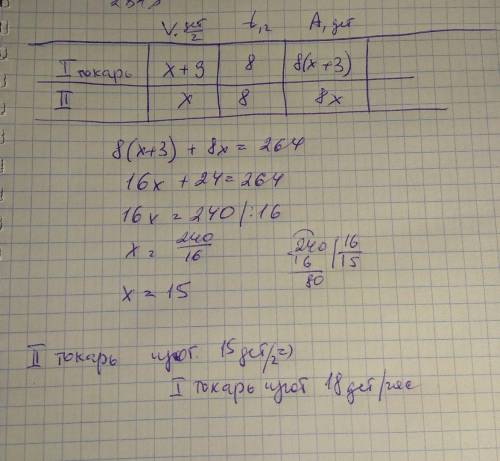 V, дет/г t, г A, дет
I токарь x+3 8 8(x+3)
II x 8 8x
8(x+3) + 8x = 264
16x + 24 = 264
16x = 240 /:16
x = 240/16
240 | 16
16 | 15
80
x = 15
II токарь изгот. 15 дет/г =>
I токарь изгот 18 дет/час